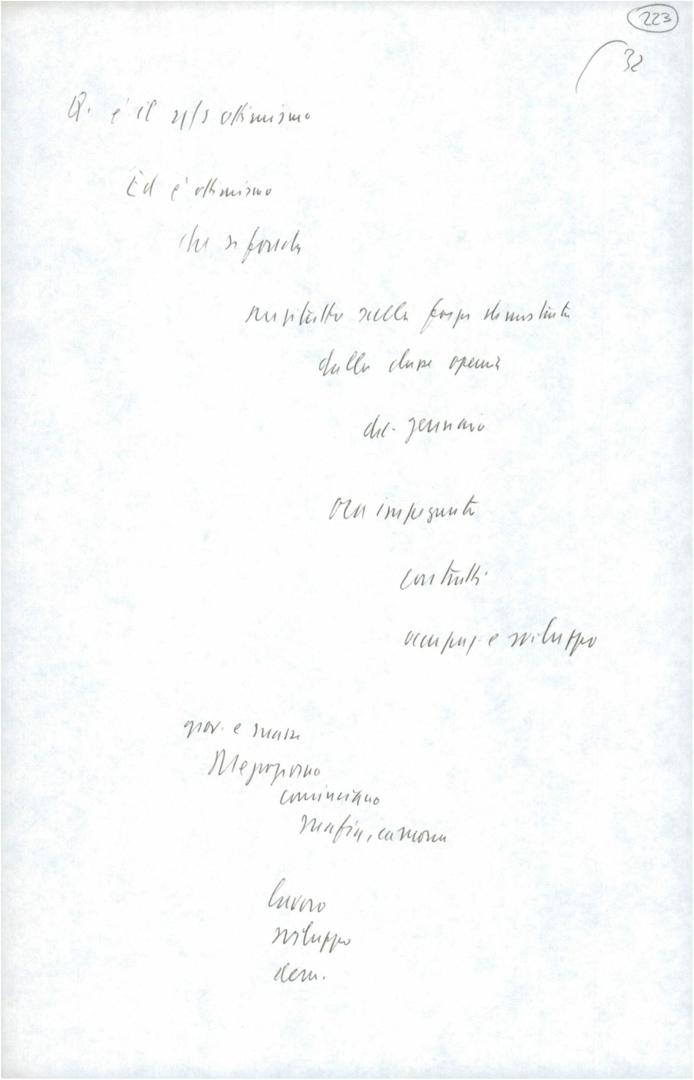 223
32
Q. è il n/s ottimismo
Ed è ottimismo
che si fonda
sulla forza dimostrata
dalla classe operaia
dic. gennaio
ora impegnata
contratti
occupaz. e sviluppo
giov. e masse
Mezzogiorno
cominciano
mafia, camorra
lavoro
sviluppo
dem.